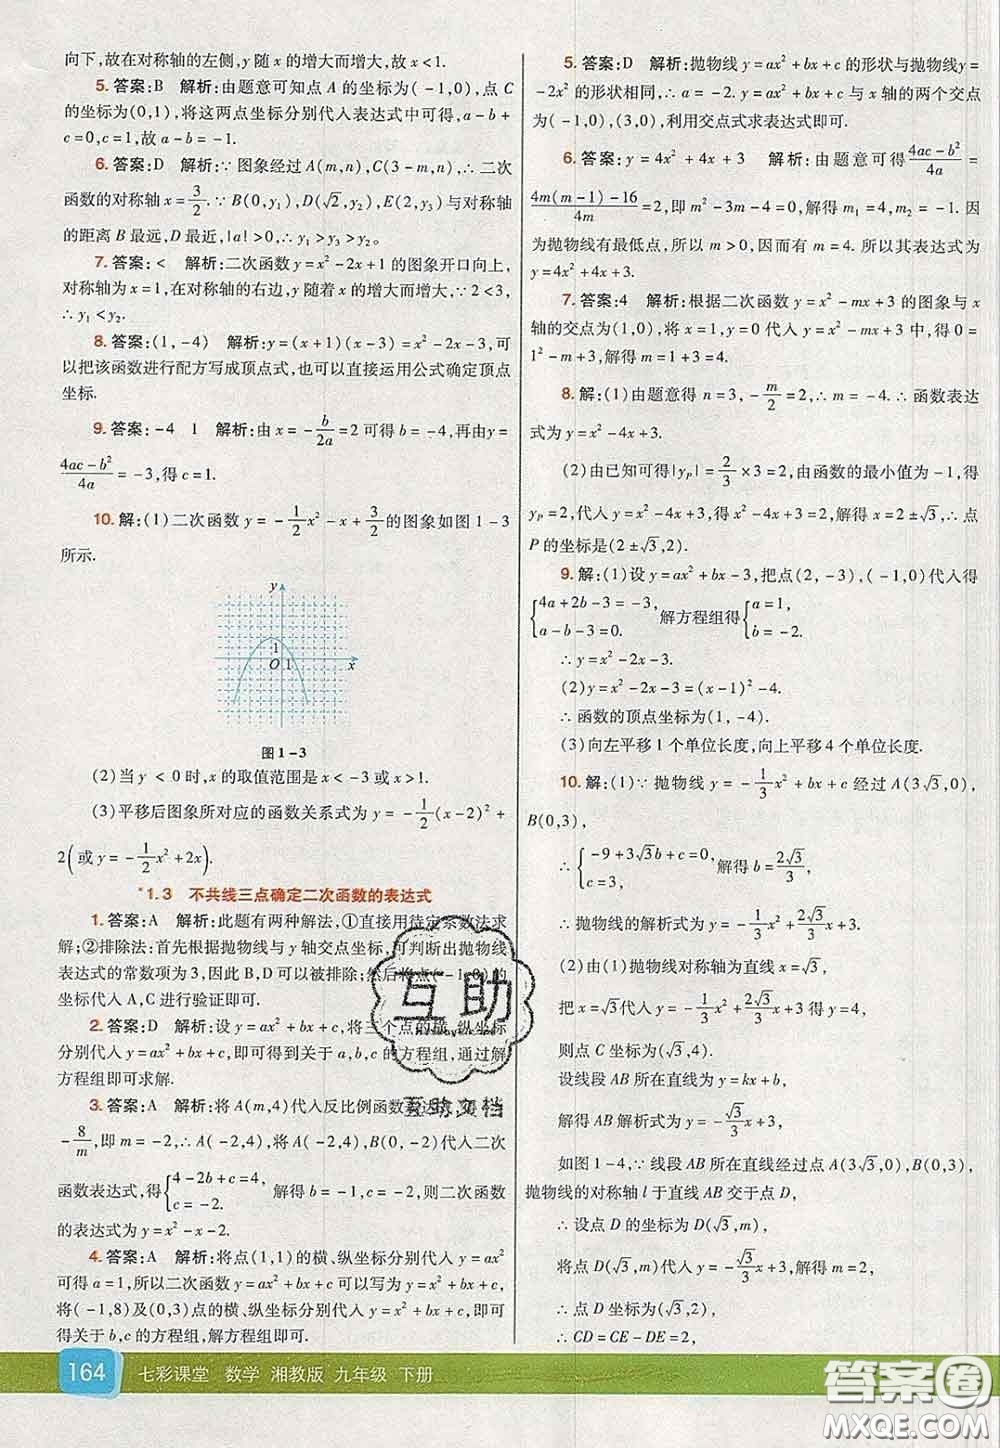 向下,故在对称轴的左侧,y 随 x 的增大而增大,故 x<1.
5. 答案:B 解析:由题意可知点 A 的坐标为(-1,0),点 C
的坐标为(0,1),将这两点坐标分别代入表达式中可得,a-b+
c=0,c=1,故 a-b=-1.
6. 答案:D 解析:∵图象经过 A(m,n),C(3-m,n),∴二次
函数的对称轴 x=3/2.∵B(0,y₁),D(√2,y₂),E(2,y₃)与对称轴
的距离 B 最远,D 最近,|a|>0,∴y₁>y₃>y₂。
7. 答案:< 解析:二次函数 y=x²-2x+1 的图象开口向上,
对称轴为 x=1,在对称轴的右边,y 随着 x 的增大而增大,∵2<3,
∴y₁<y₂.
8. 答案:(1,-4) 解析:y=(x+1)(x-3)=x²-2x-3,可
以把该函数进行配方写成顶点式,也可以直接运用公式确定顶点
坐标.
9. 答案:-4 1 解析:由 x=-b/2a=2 可得 b=-4,再由y=
(4ac-b²)/4a=-3,得 c=1.
10. 解:(1)二次函数 y=-1/2x²-x+3/2的图象如图 1-3
所示.
y
1
O 1 x
图 1-3
(2)当 y<0 时,x 的取值范围是 x<-3 或 x>1.
(3)平移后图象所对应的函数关系式为 y=-1/2(x-2)²+
2(或 y=-1/2x²+2x).
*1.3 不共线三点确定二次函数的表达式
1. 答案:A 解析:此题有两种解法,①直接用待定系数法求
解;②排除法:首先根据抛物线与 y 轴交点坐标,可判断出抛物线
表达式的常数项为 3,因此 B,D 可以被排除;然后将点(-1,8)的
坐标代入 A,C 进行验证即可.
2. 答案:D 解析:设 y=ax²+bx+c,将三个点的横、纵坐标
分别代入 y=ax²+bx+c,即可得到关于 a,b,c 的方程组,通过解
方程组即可求解.
3. 答案:A 解析:将 A(m,4)代入反比例函数表达式,得 4=
-8/m,即 m=-2,∴A(-2,4),将 A(-2,4),B(0,-2)代入二次
函数表达式,得{4-2b+c=4, c=-2. 解得 b=-1,c=-2,则二次函数
的表达式为 y=x²-x-2.
4. 答案:A 解析:将点(1,1)的横、纵坐标分别代入 y=ax²
可得 a=1,所以二次函数 y=ax²+bx+c 可以写为 y=x²+bx+c,
将(-1,8)及(0,3)点的横、纵坐标分别代入 y=x²+bx+c,即可
得关于 b,c 的方程组,解方程组即可.
5. 答案:D 解析:抛物线 y=ax²+bx+c 的形状与抛物线y=
-2x² 的形状相同,∴a=-2. y=ax²+bx+c 与 x 轴的两个交点
为(-1,0),(3,0),利用交点式求表达式即可.
6. 答案:y=4x²+4x+3 解析:由题意可得(4ac-b²)/4a=
(4m(m-1)-16)/4m=2,即 m²-3m-4=0,解得 m₁=4,m₂=-1.因
为抛物线有最低点,所以 m>0,所以 m=4.所以其表达式为
y=4x²+4x+3.
7. 答案:4 解析:根据二次函数 y=x²-mx+3 的图象与 x
轴的交点为(1,0),将 x=1,y=0 代入 y=x²-mx+3 中,得 0=
1²-m+3,解得 m=1+3=4.
8. 解:(1)由题意得 n=3,-m/2=2,∴m=-4.∴函数表达
式为 y=x²-4x+3.
(2)由已知可得|y_P|=2/3×3=2,由函数的最小值为-1,得
y_P=2,代入 y=x²-4x+3,得 x²-4x+3=2,解得 x=2±√3,∴点
P 的坐标是(2±√3,2).
9. 解:(1)设 y=ax²+bx-3,把点(2,-3),(-1,0)代入得
{4a+2b-3=-3, a-b-3=0. 解方程组得{a=1, b=-2.
∴y=x²-2x-3.
(2)y=x²-2x-3=(x-1)²-4.
∴函数的顶点坐标为(1,-4).
(3)向左平移 1 个单位长度,向上平移 4 个单位长度.
10. 解:(1)∵抛物线 y=-1/3x²+bx+c 经过 A(3√3,0),
B(0,3),
∴{-9+3√3b+c=0, c=3. 解得 b=2√3/3.
∴抛物线的解析式为 y=-1/3x²+2√3/3x+3.
(2)由(1)抛物线对称轴为直线 x=√3,
把 x=√3代入 y=-1/3x²+2√3/3x+3 得 y=4,
则点 C 坐标为(√3,4).
设线段 AB 所在直线为 y=kx+b,
解得 AB 解析式为 y=-√3/3x+3,
如图 1-4,∵线段 AB 所在直线经过点 A(3√3,0),B(0,3),
抛物线的对称轴 l 于直线 AB 交于点 D,
∴设点 D 的坐标为 D(√3,m),
将点 D(√3,m)代入 y=-√3/3x+3,解得 m=2,
∴点 D 坐标为(√3,2),
∴CD=CE-DE=2,
164 七彩课堂 数学 湘教版 九年级 下册
互助
互助文档
答案圈
MXQE.COM